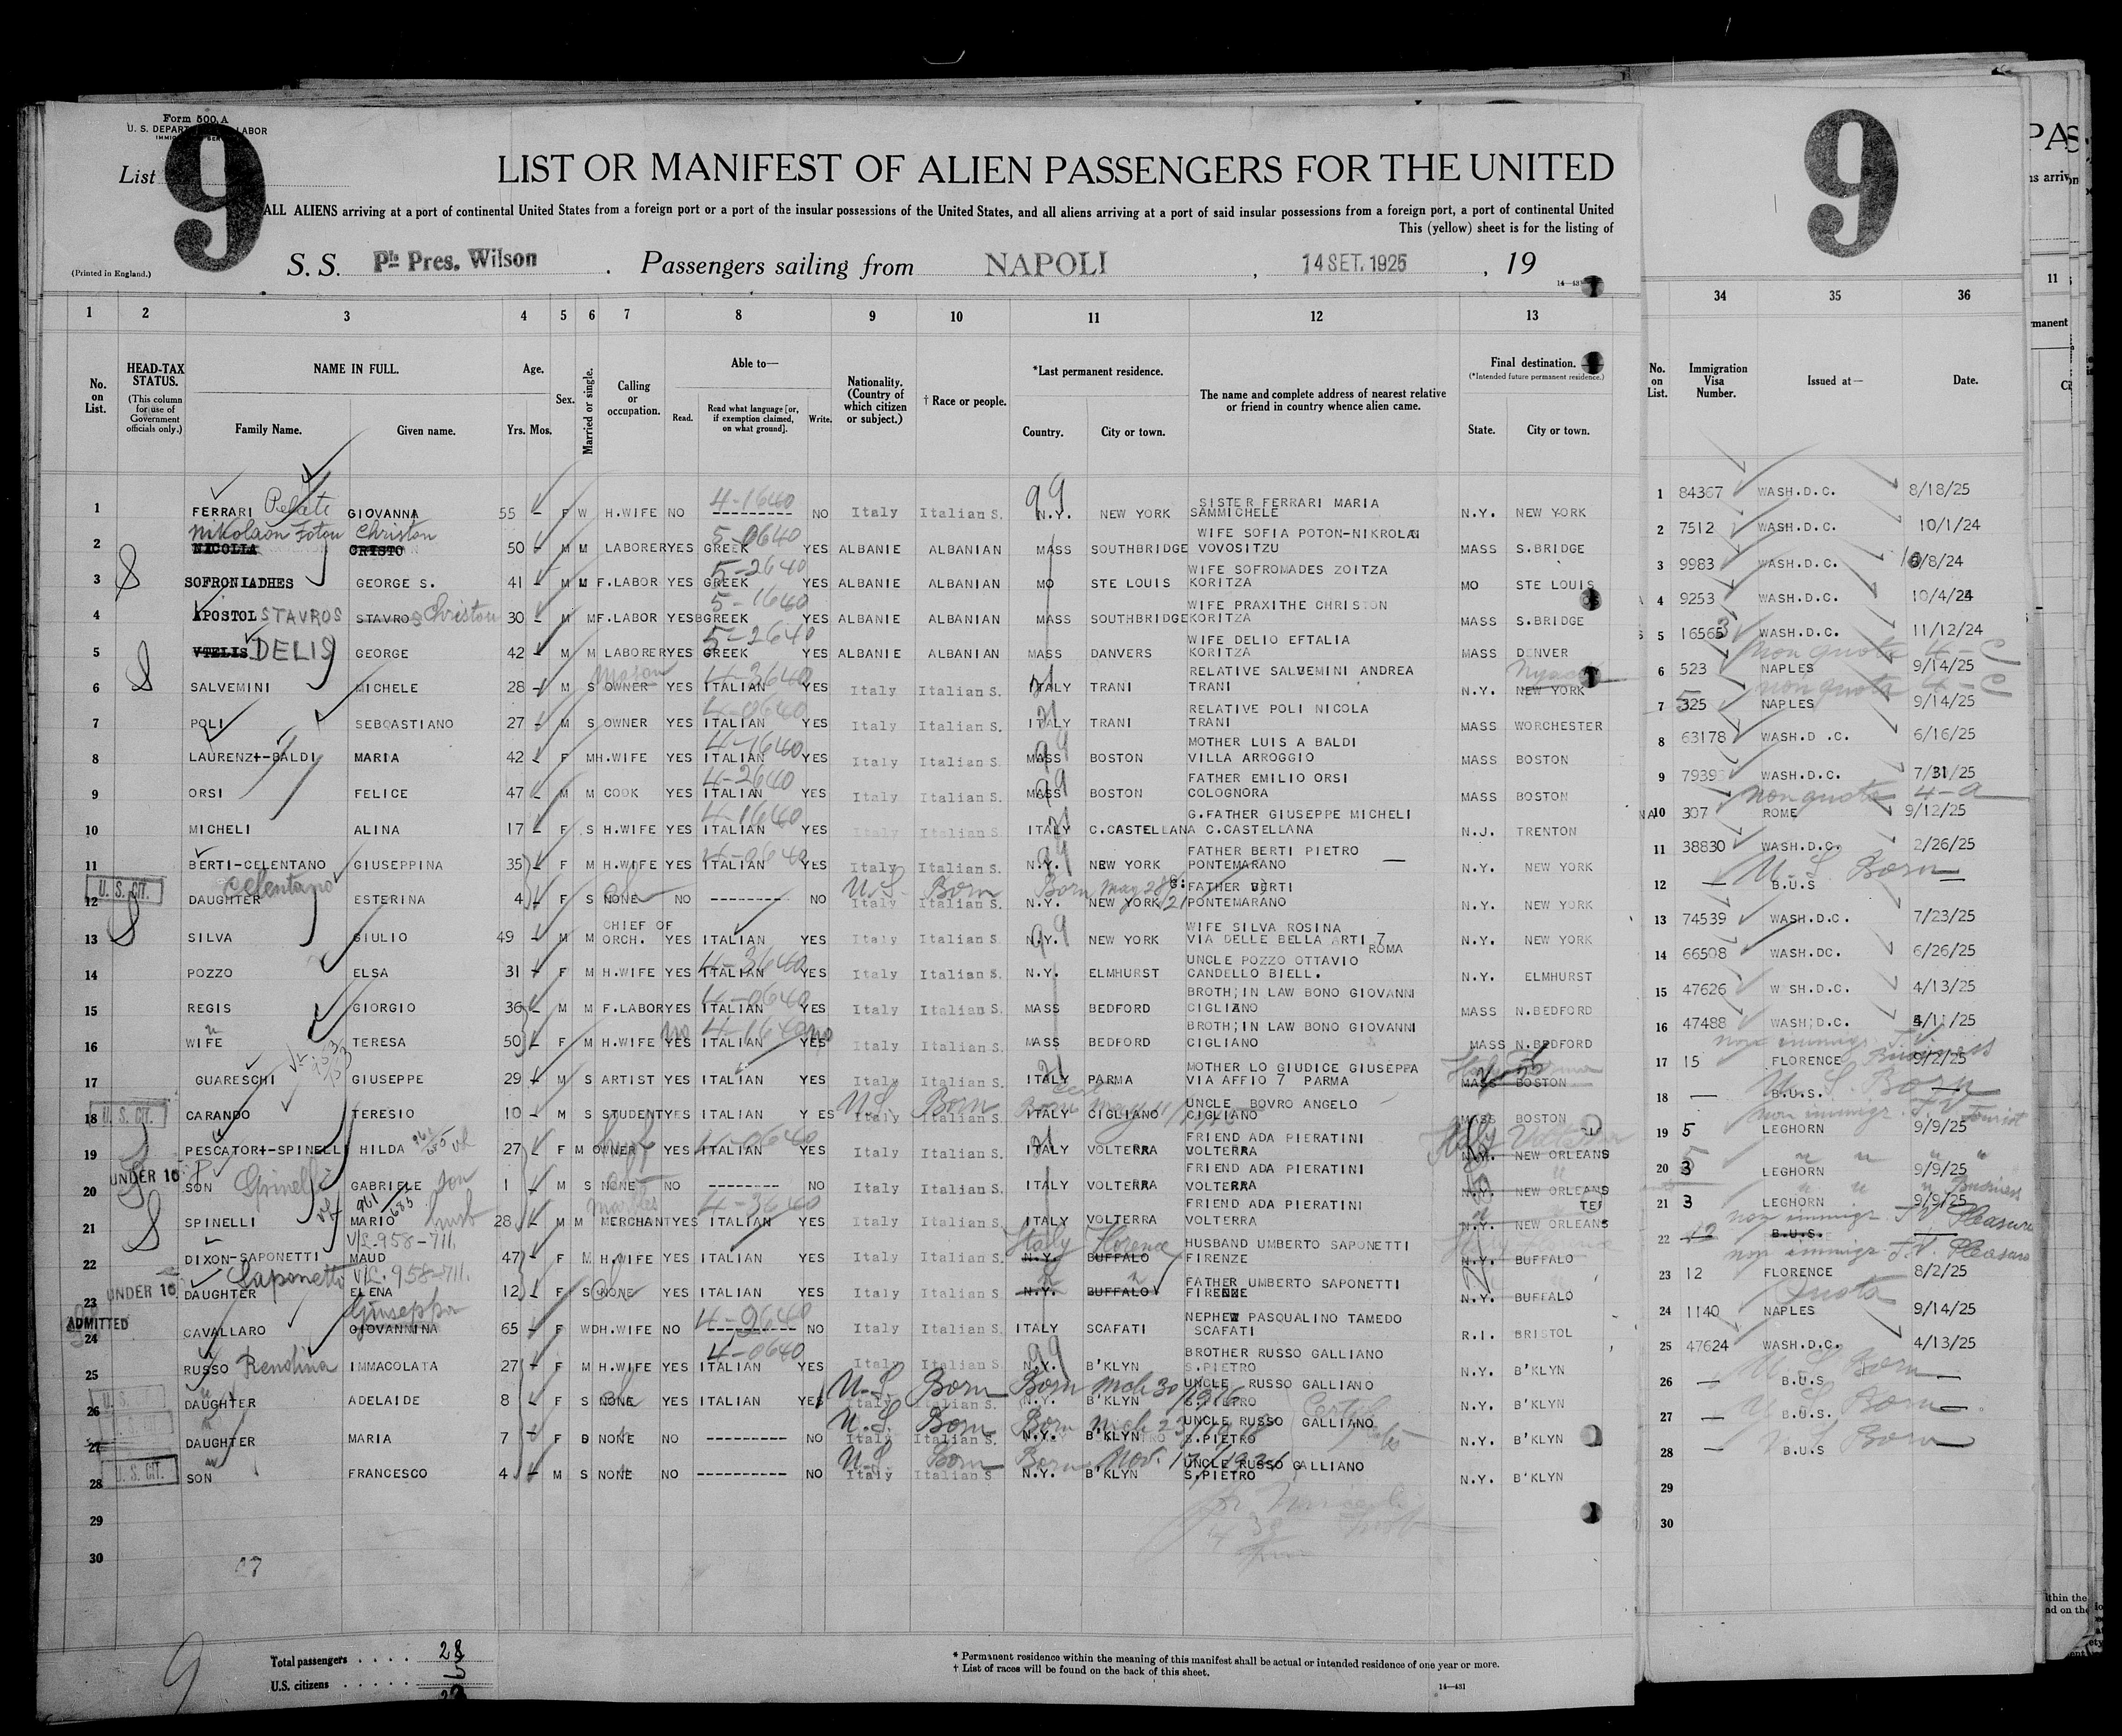 Form 500 A
U. S. DEPARTMENT LABOR
List 9
LIST OR MANIFEST OF ALIEN PASSENGERS FOR THE UNITED
ALL ALIENS arriving at a port of continental United States from a foreign port or a port of the insular possessions of the United States, and all aliens arriving at a port of said insular possessions from a foreign port, a port of continental United
This (yellow) sheet is for the listing of
(Printed in England.)
S. S. Pts Pres. Wilson . Passengers sailing from NAPOLI , 14 SET. 1925 , 19
9
1 2 3 4 5 6 7 8 9 10 11 12 13
34 35 36
No. on List.
HEAD-TAX STATUS. (This column for use of Government officials only.)
NAME IN FULL. Family Name. Given name.
Age. Yrs. Mos.
Sex.
Married or single.
Calling or occupation.
Able to— Read. Read what language [or, if exemption claimed, on what ground]. Write.
Nationality. (Country of which citizen or subject.)
† Race or people.
*Last permanent residence. Country. City or town.
The name and complete address of nearest relative or friend in country whence alien came.
Final destination. (*Intended future permanent residence.) State. City or town.
No. on List. Immigration Visa Number. Issued at— Date.
1 FERRARI GIOVANNA 55 - F W H.WIFE NO 4-1640 NO Italy Italian S. 99 N.Y. NEW YORK SISTER FERRARI MARIA SAMMICHELE N.Y. NEW YORK 1 84367 WASH.D.C. 8/18/25
2 NICOLLA Nikolaon Foton CRISTO Christon 50 - M M LABORER YES GREEK 5-0640 YES ALBANIE ALBANIAN MASS SOUTHBRIDGE WIFE SOFIA POTON-NIKROLAI VOVOSITZU MASS S.BRIDGE 2 7512 WASH.D.C. 10/1/24
3 SOFRONIADHES GEORGE S. 41 - M M F.LABOR YES GREEK 5-2640 YES ALBANIE ALBANIAN MO STE LOUIS WIFE SOFROMADES ZOITZA KORITZA MO STE LOUIS 3 9983 WASH.D.C. /8/24
4 APOSTOL STAVROS STAVROS Christon 30 - M M F.LABOR YES GREEK 5-1640 YES ALBANIE ALBANIAN MASS SOUTHBRIDGE WIFE PRAXITHE CHRISTON KORITZA MASS S.BRIDGE 4 9253 WASH.D.C. 10/4/24
5 VTELIS DELIS GEORGE 42 - M M LABORER YES GREEK 5-2640 YES ALBANIE ALBANIAN MASS DANVERS WIFE DELIO EFTALIA KORITZA MASS DENVER 5 16563 WASH.D.C. 11/12/24
6 SALVEMINI MICHELE 28 - M S OWNER Mason YES ITALIAN 4-3640 YES Italy Italian S. ITALY TRANI RELATIVE SALVEMINI ANDREA TRANI N.Y. NEW YORK 6 523 NAPLES non quota 9/14/25
7 POLI SEBOASTIANO 27 - M S OWNER YES ITALIAN 4-0640 YES Italy Italian S. ITALY TRANI RELATIVE POLI NICOLA TRANI MASS WORCHESTER 7 525 NAPLES non quota 9/14/25
8 LAURENZ+-BALDI MARIA 42 - F M H.WIFE YES ITALIAN 4-1640 YES Italy Italian S. 99 MASS BOSTON MOTHER LUIS A BALDI VILLA ARROGGIO MASS BOSTON 8 63178 WASH.D .C. 6/16/25
9 ORSI FELICE 47 - M M COOK YES ITALIAN 4-2640 YES Italy Italian S. 99 MASS BOSTON FATHER EMILIO ORSI COLOGNORA MASS BOSTON 9 7939 WASH.D.C. 7/31/25
10 MICHELI ALINA 17 - F S H.WIFE YES ITALIAN 4-1640 YES Italy Italian S. ITALY C.CASTELLANA G.FATHER GIUSEPPE MICHELI C.CASTELLANA N.J. TRENTON 10 307 ROME non quota 4-a 9/12/25
11 BERTI-CELENTANO GIUSEPPINA 35 - F M H.WIFE YES ITALIAN 4-0640 YES Italy Italian S. 99 N.Y. NEW YORK FATHER BERTI PIETRO PONTEMARANO N.Y. NEW YORK 11 38830 WASH.D.C. 2/26/25
U. S. CIT. 12 DAUGHTER Celentano ESTERINA 4 - F S NONE NO --------- NO U.S. Born Italy Italian S. Born May 28/21 N.Y. NEW YORK G: FATHER BERTI PONTEMARANO N.Y. NEW YORK 12 — B.U.S U.S. Born —
13 SILVA GIULIO 49 - M M CHIEF OF ORCH. YES ITALIAN YES Italy Italian S. 99 N.Y. NEW YORK WIFE SILVA ROSINA VIA DELLE BELLA ARTI 7 ROMA N.Y. NEW YORK 13 74539 WASH.D.C. 7/23/25
14 POZZO ELSA 31 - F M H.WIFE YES ITALIAN 4-3640 YES Italy Italian S. N.Y. ELMHURST UNCLE POZZO OTTAVIO CANDELLO BIELL. N.Y. ELMHURST 14 66508 WASH.DC. 6/26/25
15 REGIS GIORGIO 36 - M M F.LABOR YES ITALIAN 4-0640 YES Italy Italian S. MASS BEDFORD BROTH;IN LAW BONO GIOVANNI CIGLIANO MASS N.BEDFORD 15 47626 W SH.D.C. 4/13/25
16 WIFE TERESA 50 - F M H.WIFE YES no ITALIAN 4-1640 YES no Italy Italian S. MASS BEDFORD BROTH;IN LAW BONO GIOVANNI CIGLIANO MASS N.BEDFORD 16 47488 WASH;D.C. /11/25
17 GUARESCHI GIUSEPPE 29 - M S ARTIST YES ITALIAN YES Italy Italian S. ITALY PARMA MOTHER LO GIUDICE GIUSEPPA VIA AFFIO 7 PARMA MASS BOSTON 17 15 FLORENCE non immigr. T.V. Business 9/2/25
U. S. CIT. 18 CARANDO TERESIO 10 - M S STUDENT YES ITALIAN Y ES U.S. Born Italy Italian S. ITALY CIGLIANO UNCLE BOVRO ANGELO CIGLIANO MASS BOSTON 18 — B.U.S. U.S. Born —
19 PESCATOR+-SPINELLI HILDA 27 - F M OWNER YES ITALIAN 4-0640 YES Italy Italian S. ITALY VOLTERRA FRIEND ADA PIERATINI VOLTERRA N.Y. NEW ORLEANS 19 5 LEGHORN non immigr. T.V. Tourist 9/9/25
UNDER 16 20 SON Spinelli GABRIELE son 1 - M S NONE NO --------- NO Italy Italian S. ITALY VOLTERRA FRIEND ADA PIERATINI VOLTERRA N.Y. NEW ORLEANS 20 3 LEGHORN 9/9/25
21 SPINELLI MARIO husb 28 - M M MERCHANT YES ITALIAN 4-3640 YES Italy Italian S. ITALY VOLTERRA FRIEND ADA PIERATINI VOLTERRA N.Y. NEW ORLEANS 21 3 LEGHORN Business 9/9/25
22 DIXON-SAPONETTI MAUD V/L-958-711. 47 - F M H.WIFE YES ITALIAN YES Italy Italian S. Italy Florence N.Y. BUFFALO HUSBAND UMBERTO SAPONETTI FIRENZE N.Y. BUFFALO 22 12 B.U.S. non immigr. T.V. Pleasure —
UNDER 16 23 DAUGHTER Saponetti ELENA V/L. 958-711. 12 - F S NONE YES ITALIAN YES Italy Italian S. N.Y. BUFFALO FATHER UMBERTO SAPONETTI FIRENZE N.Y. BUFFALO 23 12 FLORENCE non immigr. T.V. Pleasure 8/2/25
ADMITTED 24 CAVALLARO GIOVANNINA Giuseppa 65 - F WD H.WIFE NO 4-2640 --------- NO Italy Italian S. ITALY SCAFATI NEPHEW PASQUALINO TAMEDO SCAFATI R.I. BRISTOL 24 1140 NAPLES Quota 9/14/25
25 RUSSO Rendina IMMACOLATA 27 - F M H.WIFE YES ITALIAN 4-0640 YES Italy Italian S. 99 N.Y. B'KLYN BROTHER RUSSO GALLIANO S.PIETRO N.Y. B'KLYN 25 47624 WASH.D.C. 4/13/25
U. S. 26 DAUGHTER ADELAIDE 8 - F S NONE YES ITALIAN YES U.S. Born Italy Italian S. Born Mch 30/1916 N.Y. B'KLYN UNCLE RUSSO GALLIANO S.PIETRO N.Y. B'KLYN 26 — B.U.S U.S. Born —
27 DAUGHTER MARIA 7 - F S NONE NO --------- NO U.S. Born Italy Italian S. Born Mch 23/1918 N.Y. B'KLYN UNCLE RUSSO GALLIANO S.PIETRO N.Y. B'KLYN 27 — B.U.S. U.S. Born —
U. S. CIT. 28 SON FRANCESCO 4 - M S NONE NO --------- NO U.S. Born Italy Italian S Born Nov. N.Y. B'KLYN UNCLE RUSSO GALLIANO S.PIETRO N.Y. B'KLYN 28 — B.U.S U.S. Born —
29 29
30 30
Total passengers . . . . 28
U.S. citizens . . . . . 5
9
* Permanent residence within the meaning of this manifest shall be actual or intended residence of one year or more.
† List of races will be found on the back of this sheet.
14—431